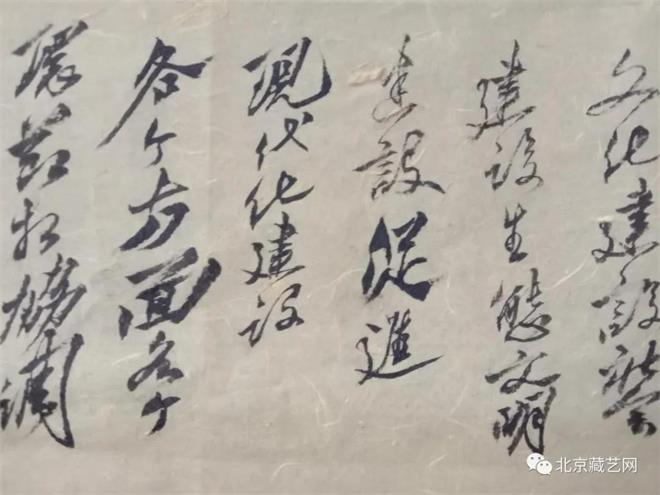 文化建設社会
建设生態文明
建設促進
現代化建设
各个方面各个
環节相協調
北京藏艺网